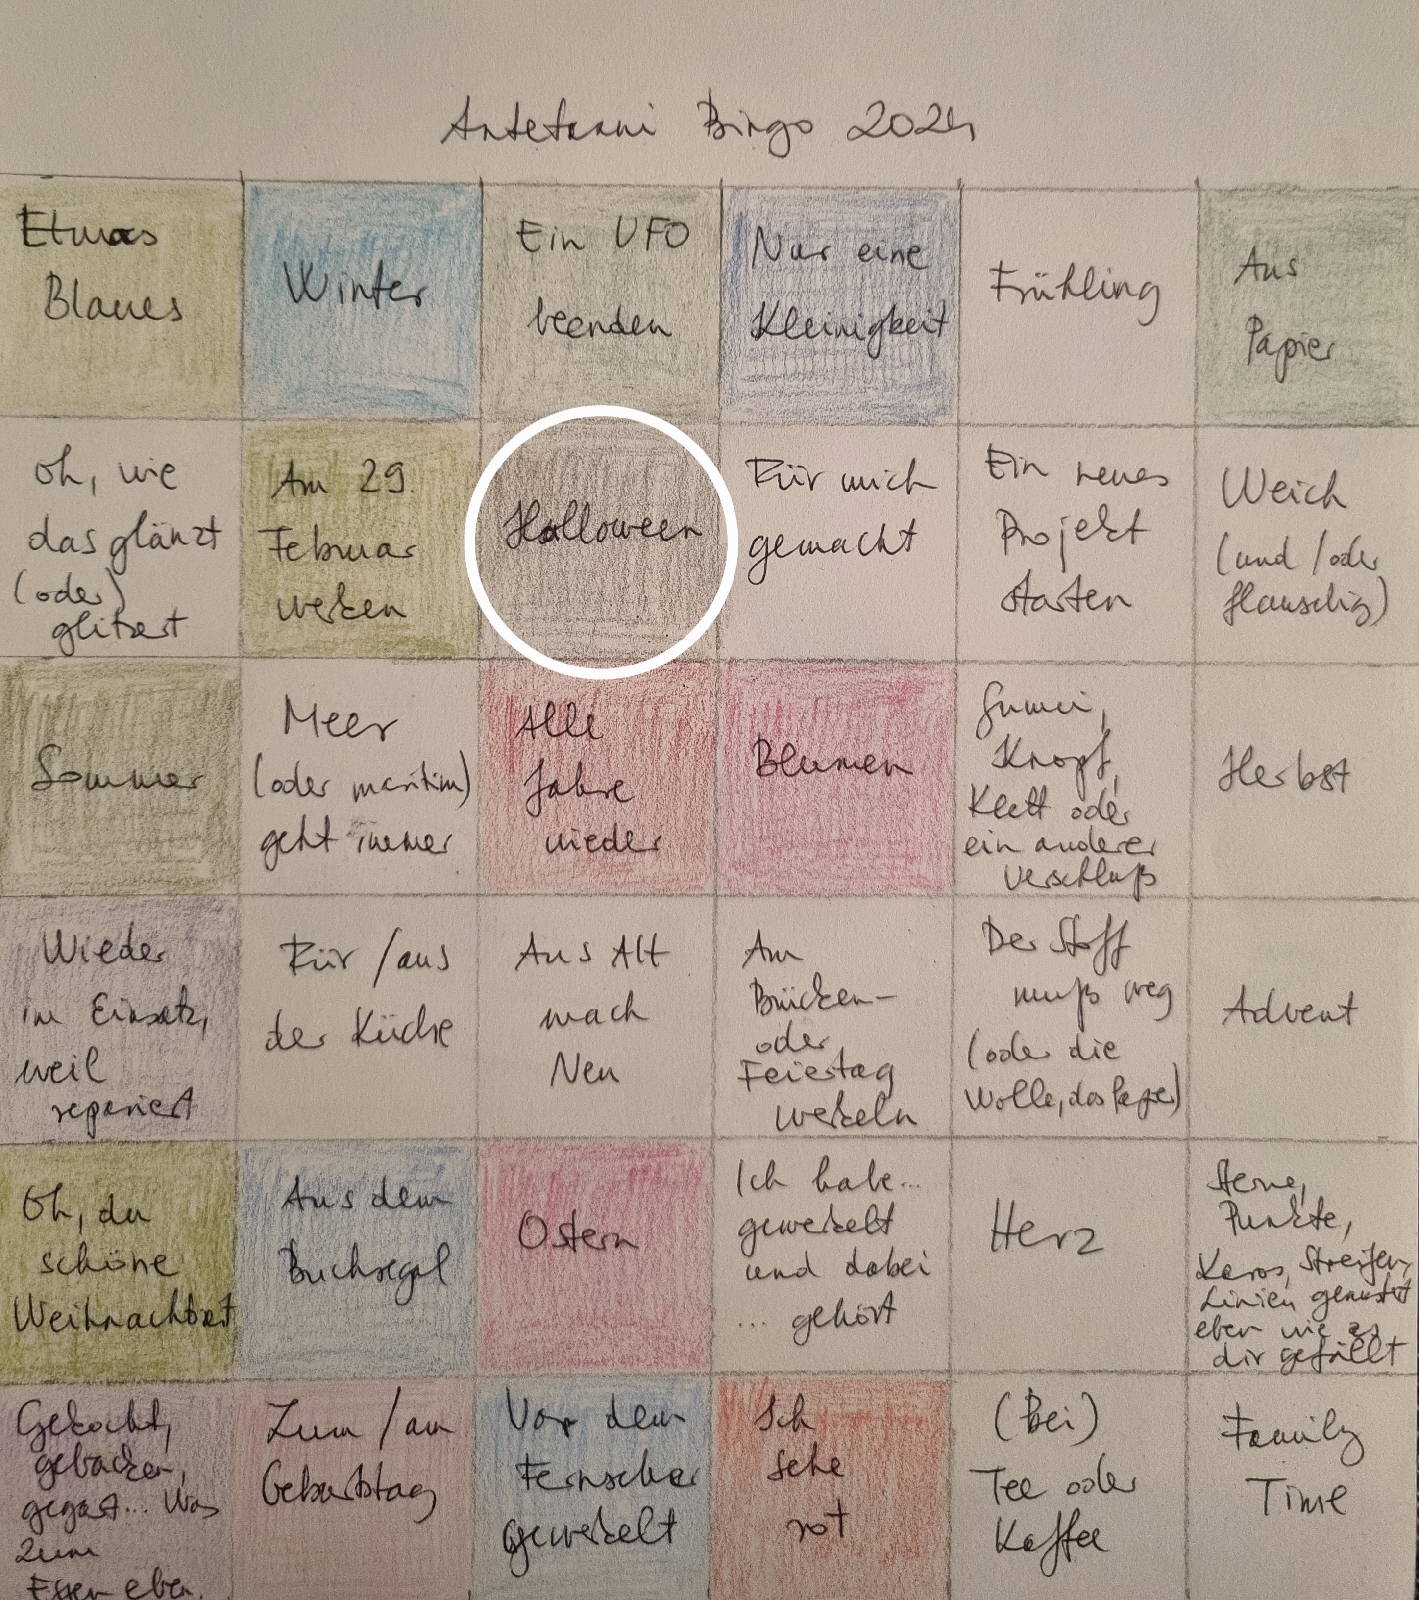 Antetanni Bingo 2024
Etwas
Blaues
Winter
Ein UFO
beenden
Nur eine
Kleinigkeit
Frühling
Aus
Papier
Oh, wie
das glänzt
(oder)
glitzert
Am 29.
Februar
werken
Halloween
Für mich
gemacht
Ein neues
Projekt
starten
Weich
(und/oder
flauschig)
Sommer
Meer
(oder maritim)
geht immer
Alle
Jahre
wieder
Blumen
Gummi,
Knopf,
Klett oder
ein anderer
Verschluß
Herbst
Wieder
im Einsatz,
weil
repariert
Für/aus
der Küche
Aus Alt
mach
Neu
Am
Brücken-
oder
Feiertag
werkeln
Der Stoff
muß weg
(oder die
Wolle, das Papier)
Advent
Oh, du
schöne
Weihnachtszeit
Aus dem
Buchregal
Ostern
Ich habe...
gewerkelt
und dabei
... gehört
Herz
Sterne,
Punkte,
Karos, Streifen,
Linien gemustert
eben wie es
dir gefällt
Gekocht,
gebacken,
gegart... Was
zum
Essen eben.
Zum/am
Geburtstag
Vor dem
Fernseher
gewerkelt
Ich
sehe
rot
(Bei)
Tee oder
Kaffee
Family
Time